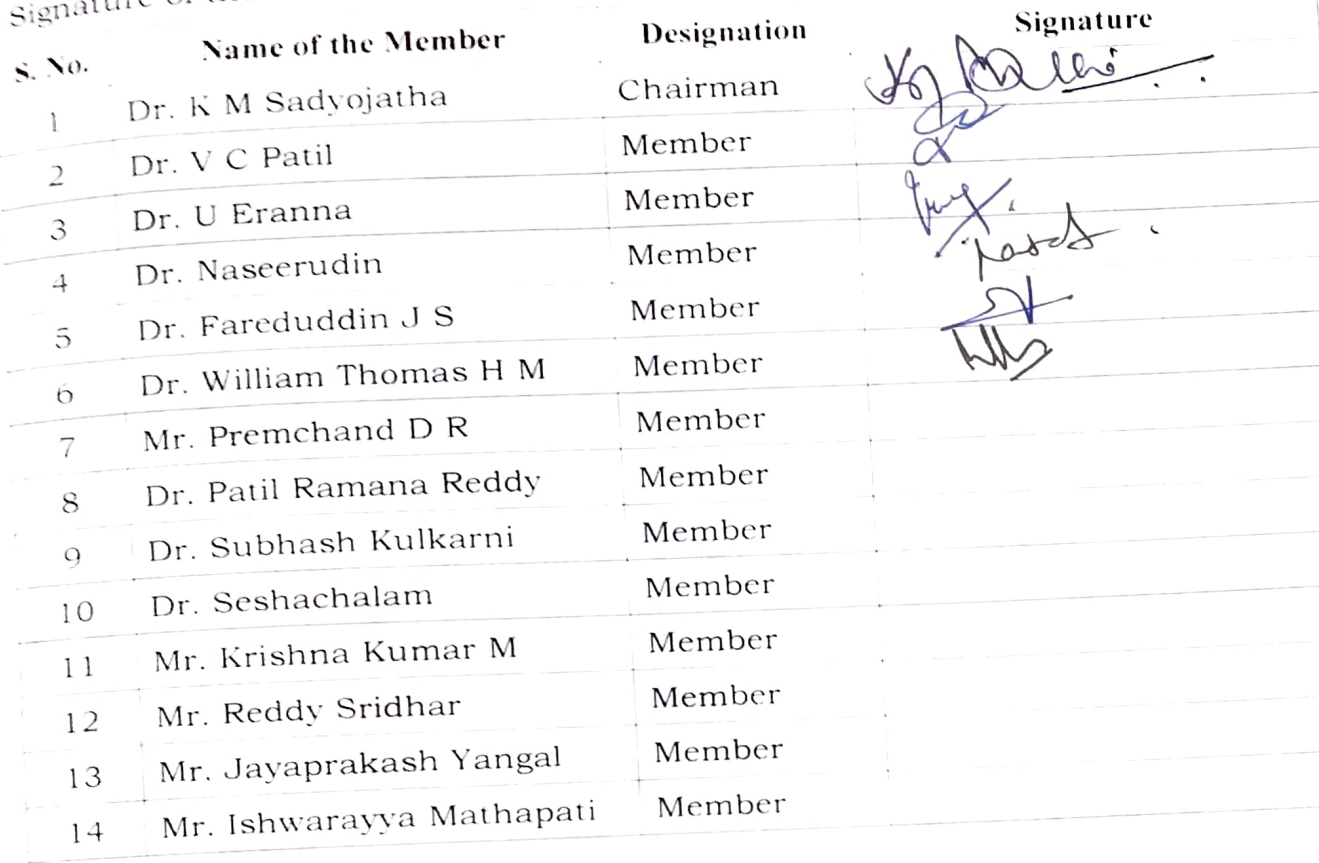 Signature of
S. No. Name of the Member Designation Signature
1 Dr. K M Sadyojatha Chairman
2 Dr. V C Patil Member
3 Dr. U Eranna Member
4 Dr. Naseerudin Member
5 Dr. Fareduddin J S Member
6 Dr. William Thomas H M Member
7 Mr. Premchand D R Member
8 Dr. Patil Ramana Reddy Member
9 Dr. Subhash Kulkarni Member
10 Dr. Seshachalam Member
11 Mr. Krishna Kumar M Member
12 Mr. Reddy Sridhar Member
13 Mr. Jayaprakash Yangal Member
14 Mr. Ishwarayya Mathapati Member